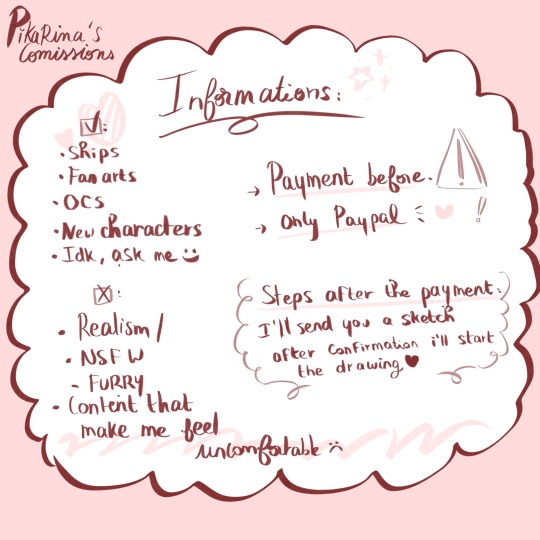 PikaRina's
Comissions
Informations:
☑:
• Ships
• Fan arts
• OCS
• New characters
• Idk, ask me :)
☒:
• Realism/
• NSFW
- FURRY
• Content that
make me feel
uncomfortable :(
→ Payment before.
→ Only Paypal
!
Steps after the payment:
I'll send you a sketch
after confirmation i'll start
the drawing ♥